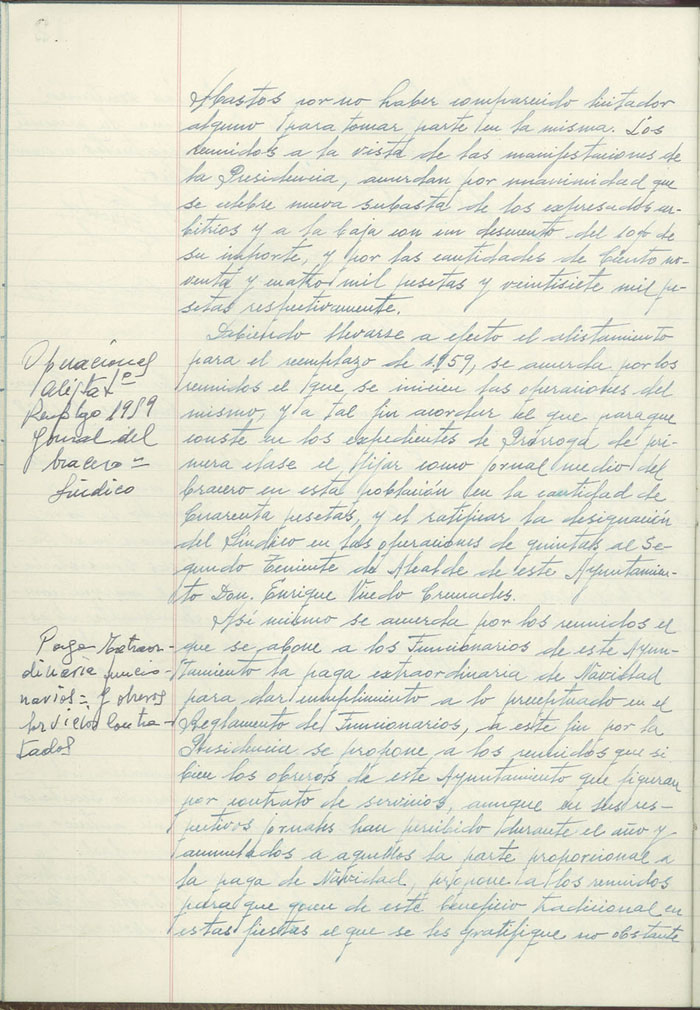 Abastos por no haber comparecido licitador
alguno para tomar parte en la misma. Los
reunidos a la vista de las manifestaciones de
la Presidencia, acuerdan por unanimidad que
se celebre nueva subasta de los expresados ar-
bitrios y a la baja con un descuento del 10% de
su importe, y por las cantidades de Ciento no-
venta y cuatro mil pesetas y veintisiete mil pe-
setas respectivamente.
Operaciones
Alistatº
Remplzo 1959
Jornal del
bracero =
Síndico
Debiendo llevarse a efecto el alistamiento
para el reemplazo de 1.959, se acuerda por los
reunidos el que se inicien las operaciones del
mismo, y a tal fin acordar el que para que
conste en los expedientes de Prórroga de pri-
mera clase el fijar como jornal medio del
bracero en esta población en la cantidad de
Cuarenta pesetas, y el ratificar la designación
del Síndico en las operaciones de quintas al Se-
gundo Teniente de Alcalde de este Ayuntamien-
to Don. Enrique Vuedo Cremades.
Paga Extraor-
dinaria funcio-
narios = y obreros
Servicios Contra-
tados
Así mismo se acuerda por los reunidos el
que se abone a los Funcionarios de este Ayun-
tamiento la paga extraordinaria de Navidad
para dar cumplimiento a lo preceptuado en el
Reglamento de Funcionarios, a este fin por la
Presidencia se propone a los reunidos que si
bien los obreros de este Ayuntamiento que figuran
por contrato de servicios, aunque en sus res-
pectivos jornales han percibido durante el año y
acumulados a aquellos la parte proporcional a
la paga de Navidad, propone a los reunidos
para que gocen de este beneficio tradicional en
estas fiestas el que se les gratifique no obstante